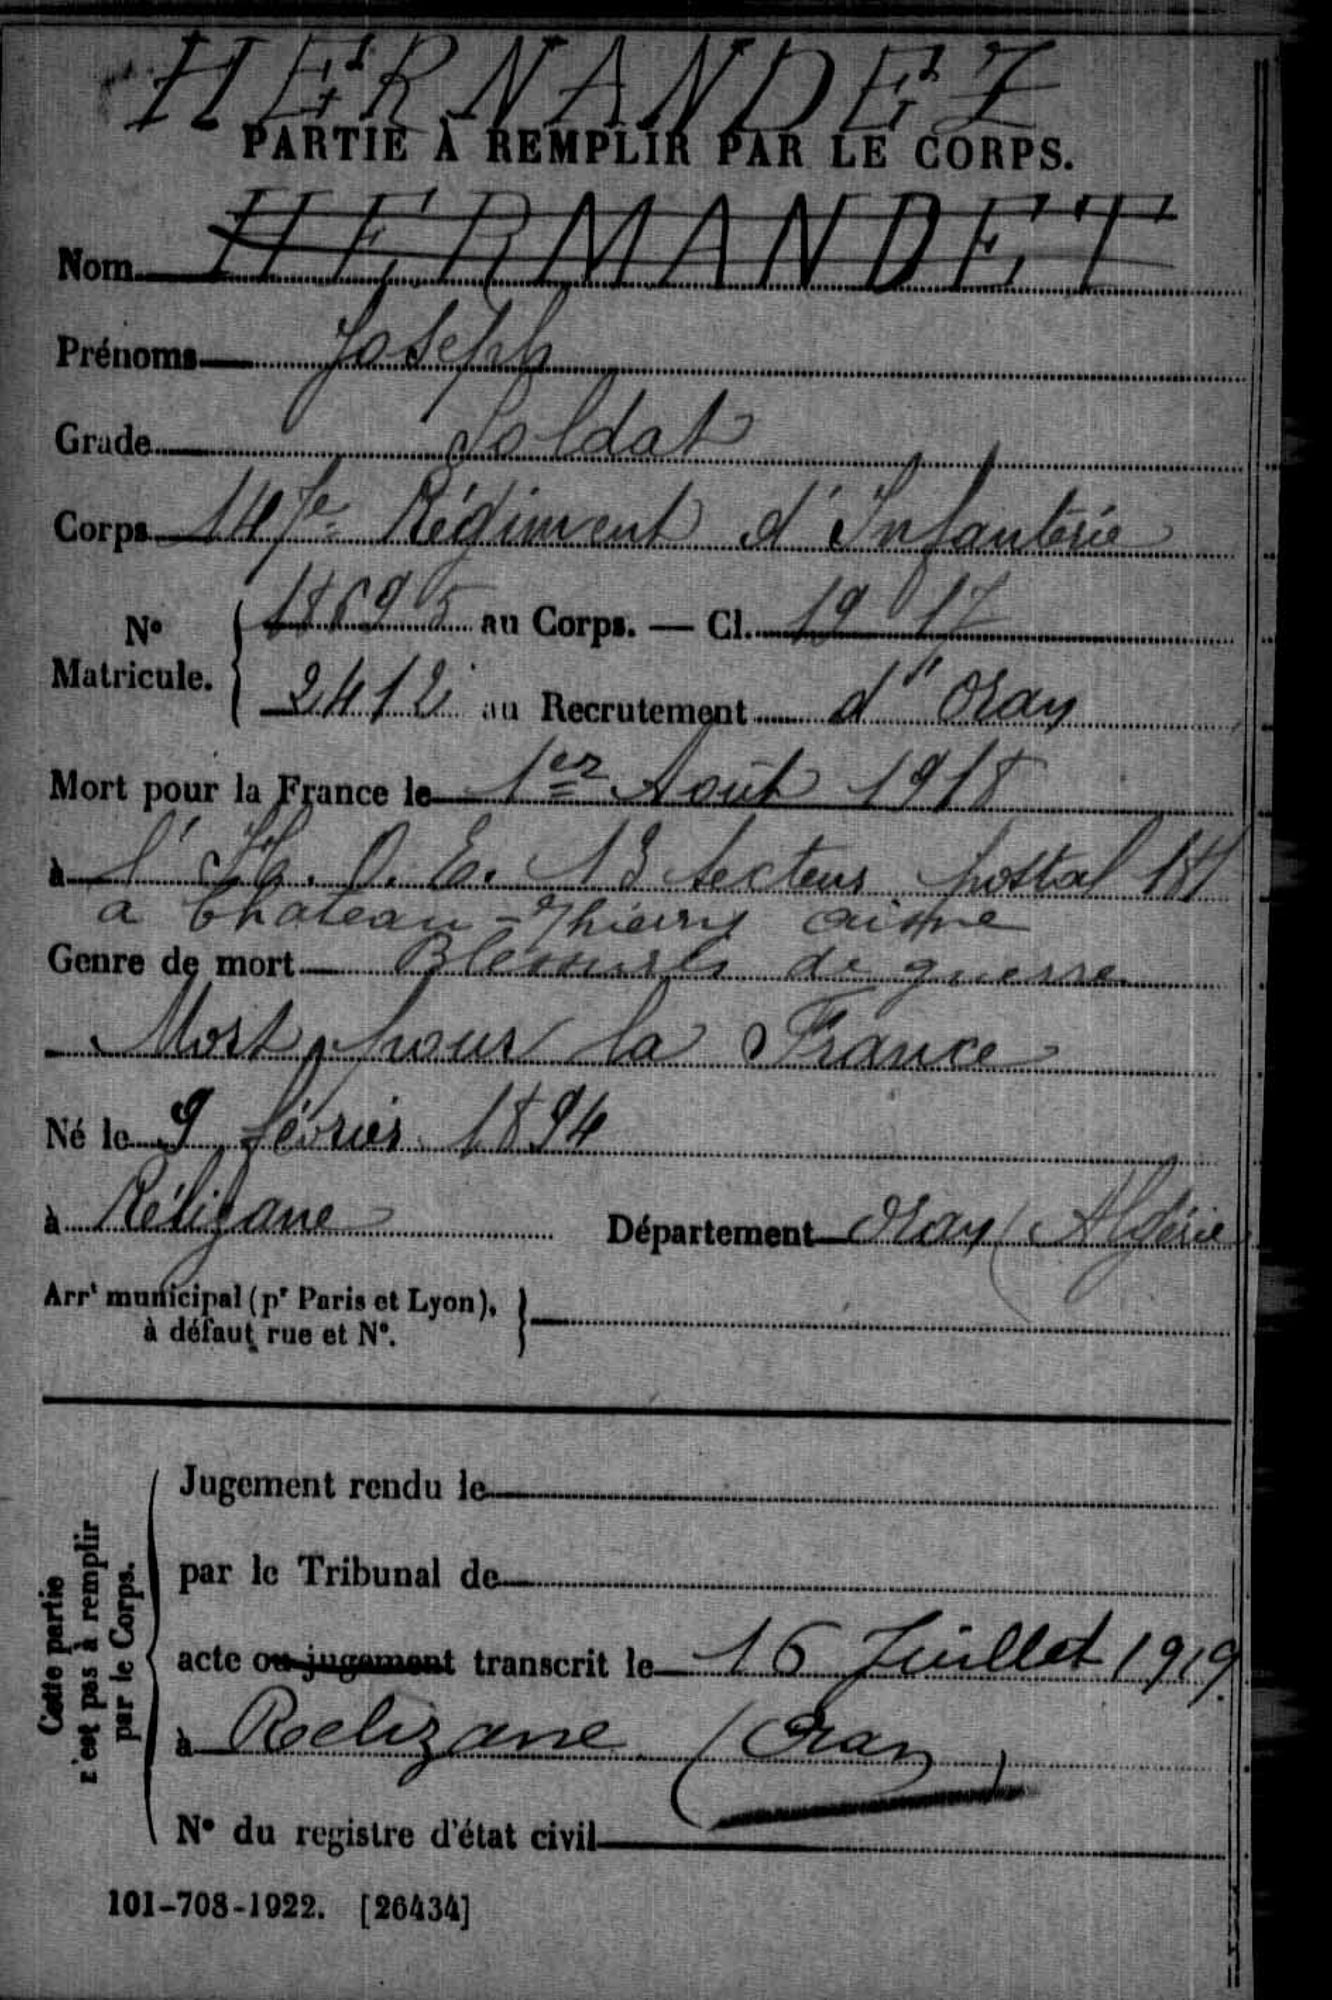 HERNANDEZ
PARTIE À REMPLIR PAR LE CORPS.
Nom HERMANDET
Prénoms Joseph
Grade Soldat
Corps 147e Régiment d'Infanterie
N° Matricule. 18695 au Corps. — Cl. 1917
2412 au Recrutement d'Oran
Mort pour la France le 1er Août 1918
à l'H. O. E. 13 secteur postal
a Chateau-Thierry Aisne
Genre de mort Blessures de guerre
Mort pour la France
Né le 9 février 1894
à Rélizane Département Oran (Algérie
Arrt municipal (pr Paris et Lyon),
à défaut rue et N°.
Cette partie
n'est pas à remplir
par le Corps.
Jugement rendu le
par le Tribunal de
acte ou jugement transcrit le 16 Juillet 1919
à Relizane (Oran)
N° du registre d'état civil
101-708-1922. [26434]